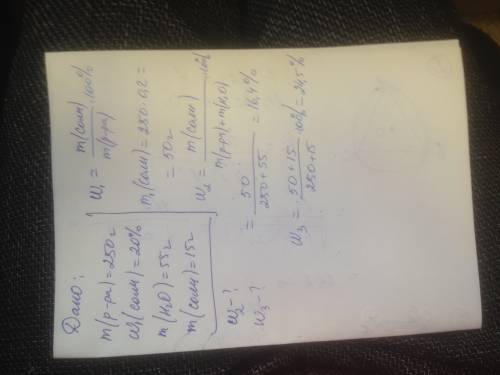 Дано:
m(р-ра)=250г
ω₁(соли)=20%
m(H₂O)=55г
m(соли)=15г
ω₂-?
ω₃-?
ω₁ = m(соли)/m(р-ра) · 100%
m₁(соли)=250·0,2=
=50г
ω₂ = m(соли)/m(р-ра)+m(H₂O) · 100%
= 50/250+55 = 16,4%
ω₃ = 50+15/250+15 · 100% = 24,5%